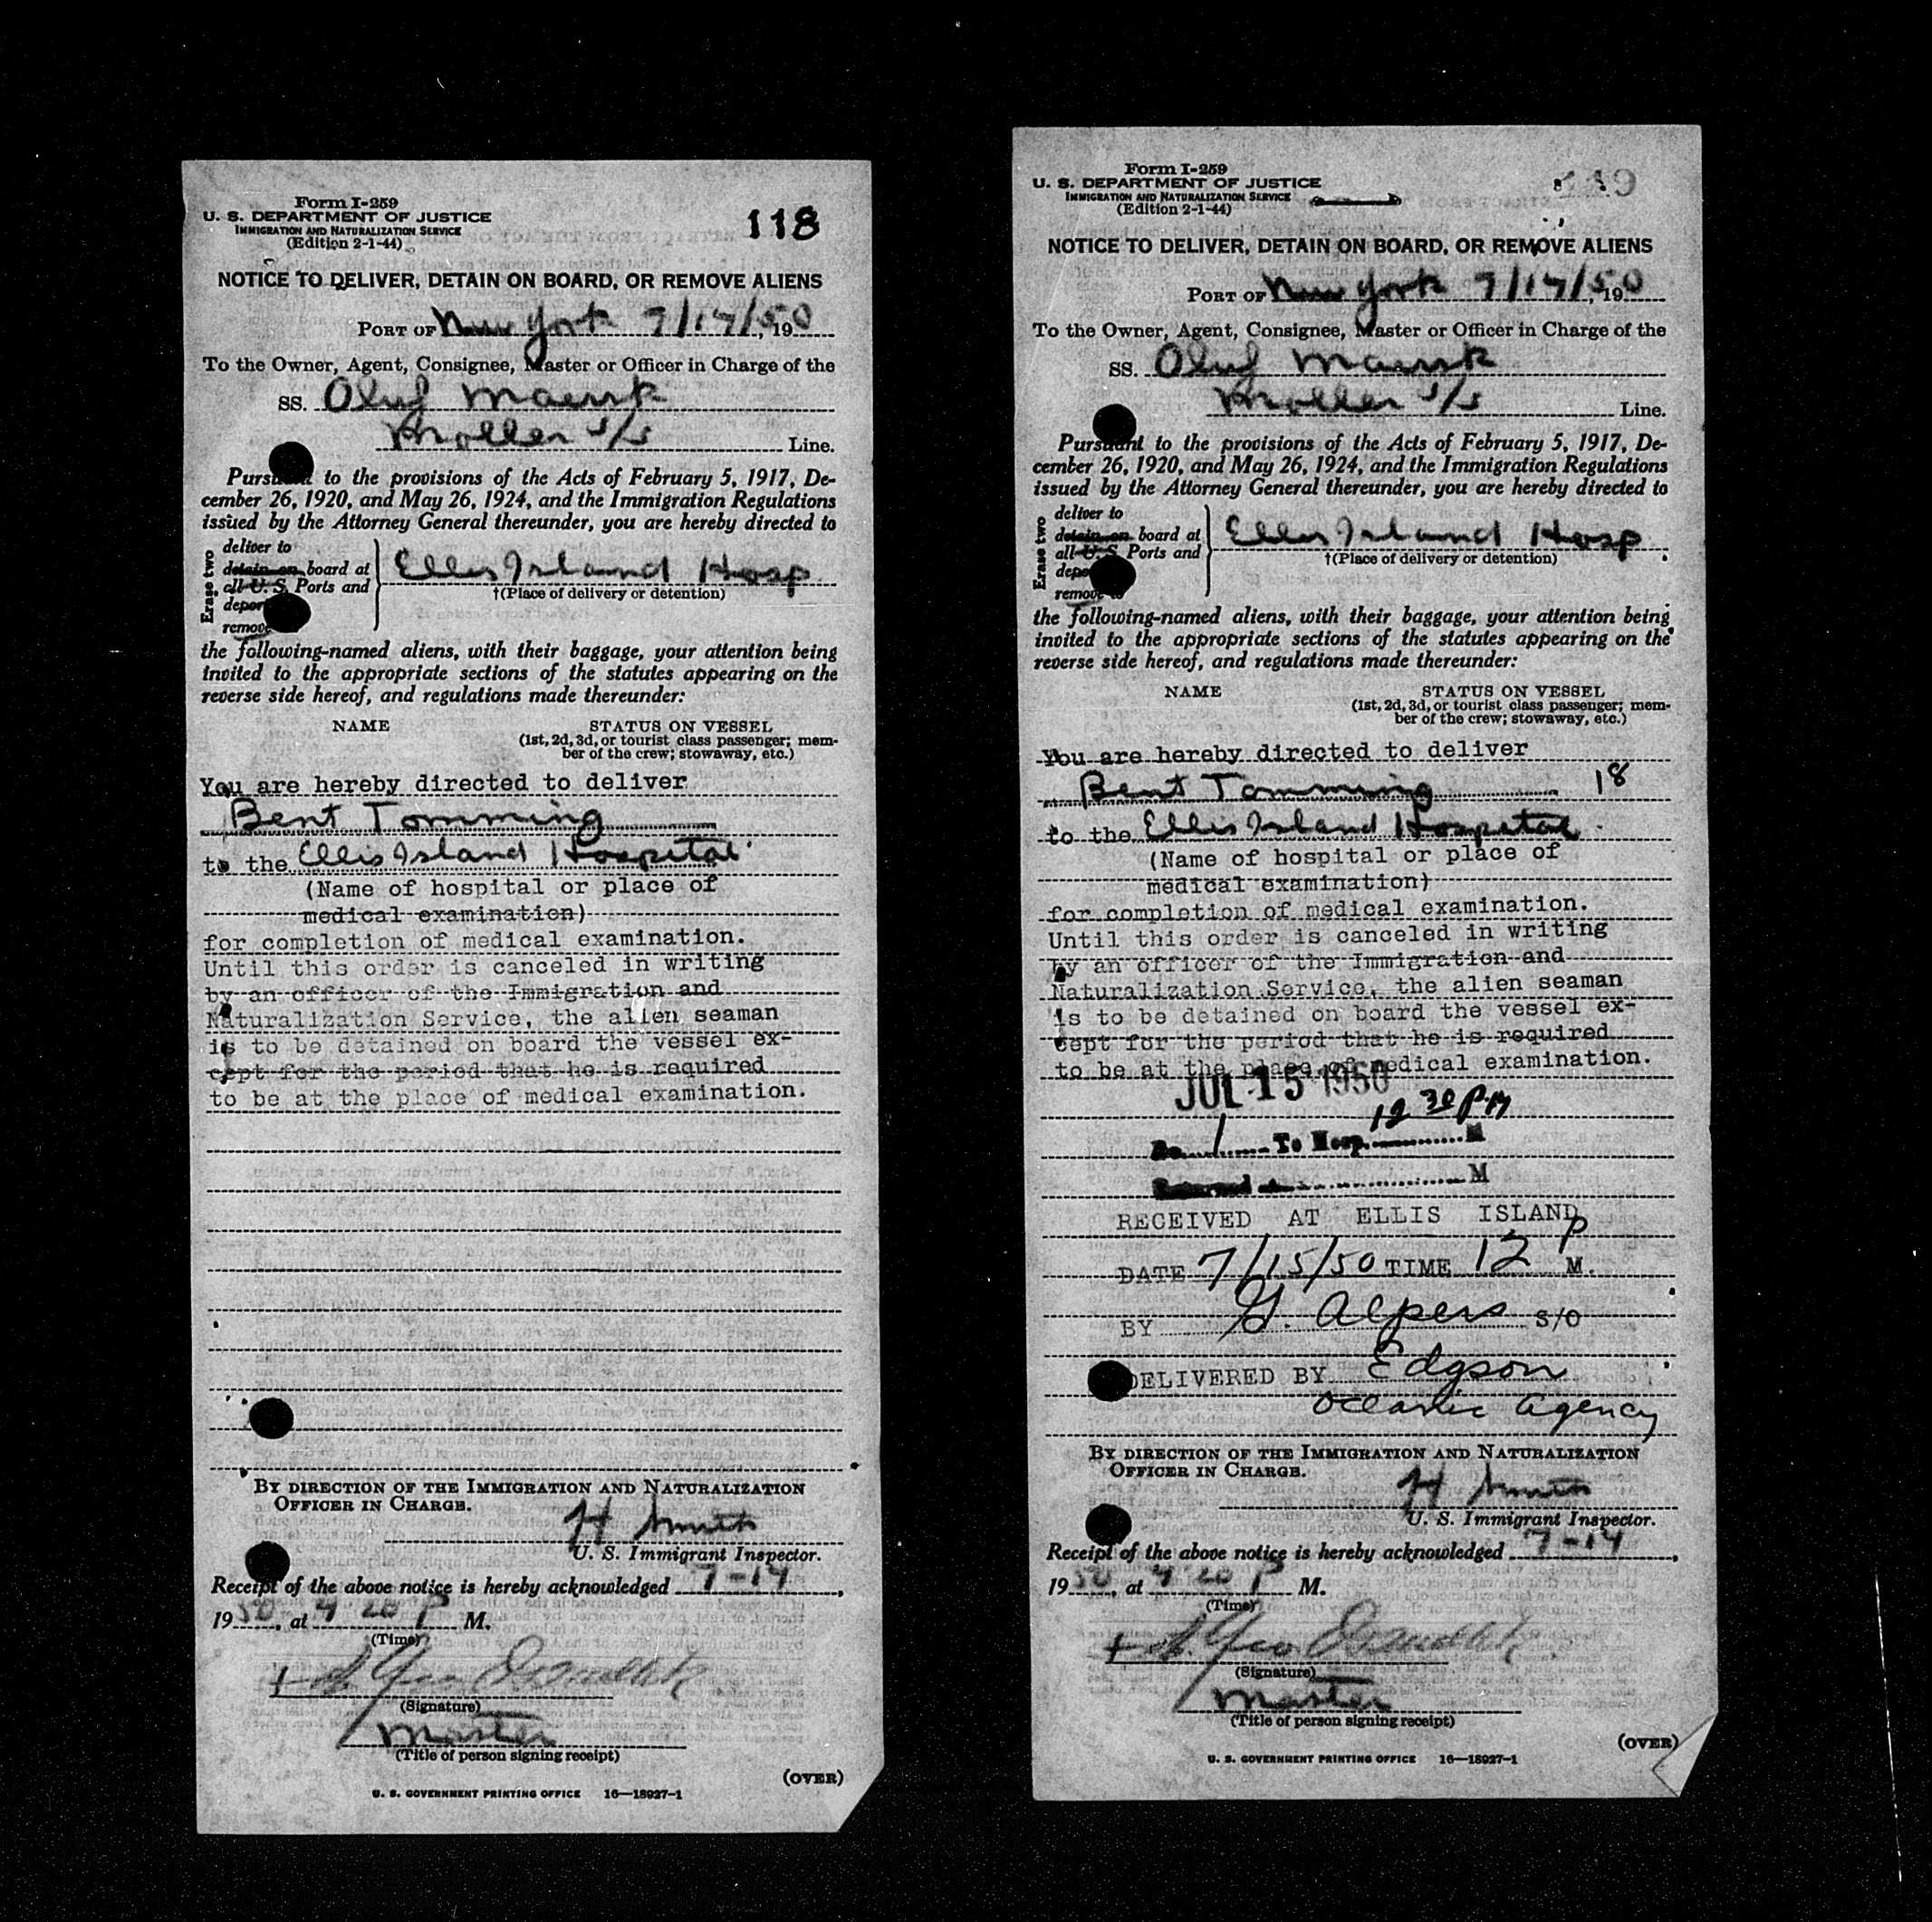 Form I-259
U. S. DEPARTMENT OF JUSTICE
IMMIGRATION AND NATURALIZATION SERVICE
(Edition 2-1-44)
118
NOTICE TO DELIVER, DETAIN ON BOARD, OR REMOVE ALIENS
PORT OF New York 7/14/50, 19
To the Owner, Agent, Consignee, Master or Officer in Charge of the
SS. Oluf Maersk
Moller S/S Line.
Pursuant to the provisions of the Acts of February 5, 1917, De-
cember 26, 1920, and May 26, 1924, and the Immigration Regulations
issued by the Attorney General thereunder, you are hereby directed to
Erase two
deliver to
detain on board at
all U. S. Ports and
depor
remove
Ellis Island Hosp
†(Place of delivery or detention)
the following-named aliens, with their baggage, your attention being
invited to the appropriate sections of the statutes appearing on the
reverse side hereof, and regulations made thereunder:
NAME STATUS ON VESSEL
(1st, 2d, 3d, or tourist class passenger; mem-
ber of the crew; stowaway, etc.)
You are hereby directed to deliver
Bent Tomming
to the Ellis Island Hospital
(Name of hospital or place of
medical examination)
for completion of medical examination.
Until this order is canceled in writing
by an officer of the Immigration and
Naturalization Service, the alien seaman
is to be detained on board the vessel ex-
cept for the period that he is required
to be at the place of medical examination.
BY DIRECTION OF THE IMMIGRATION AND NATURALIZATION
OFFICER IN CHARGE.
H Smith
U. S. Immigrant Inspector.
Receipt of the above notice is hereby acknowledged 7-14,
1950, at 4 20 P M.
(Time)
(Signature)
Master
(Title of person signing receipt)
(OVER)
U. S. GOVERNMENT PRINTING OFFICE 16—18927-1
Form I-259
U. S. DEPARTMENT OF JUSTICE
IMMIGRATION AND NATURALIZATION SERVICE
(Edition 2-1-44)
119
NOTICE TO DELIVER, DETAIN ON BOARD, OR REMOVE ALIENS
PORT OF New York 7/14/50, 19
To the Owner, Agent, Consignee, Master or Officer in Charge of the
SS. Oluf Maersk
Moller S/S Line.
Pursuant to the provisions of the Acts of February 5, 1917, De-
cember 26, 1920, and May 26, 1924, and the Immigration Regulations
issued by the Attorney General thereunder, you are hereby directed to
Erase two
deliver to
detain on board at
all U. S. Ports and
depo
remove to
Ellis Island Hosp
†(Place of delivery or detention)
the following-named aliens, with their baggage, your attention being
invited to the appropriate sections of the statutes appearing on the
reverse side hereof, and regulations made thereunder:
NAME STATUS ON VESSEL
(1st, 2d, 3d, or tourist class passenger; mem-
ber of the crew; stowaway, etc.)
You are hereby directed to deliver
Bent Tomming 18
to the Ellis Island Hospital
(Name of hospital or place of
medical examination)
for completion of medical examination.
Until this order is canceled in writing
by an officer of the Immigration and
Naturalization Service, the alien seaman
is to be detained on board the vessel ex-
cept for the period that he is required
to be at the place of medical examination.
JUL 15 1950
12 30 PM
No. 1 To Hosp. M
Returned M
RECEIVED AT ELLIS ISLAND
DATE 7/15/50 TIME 12 P M.
BY G. Alpers S/O
DELIVERED BY Edgson
Oceanic Agency
BY DIRECTION OF THE IMMIGRATION AND NATURALIZATION
OFFICER IN CHARGE.
H Smith
U. S. Immigrant Inspector.
Receipt of the above notice is hereby acknowledged 7-14,
1950, at 4 20 P M.
(Time)
(Signature)
Master
(Title of person signing receipt)
(OVER)
U. S. GOVERNMENT PRINTING OFFICE 16—18927-1